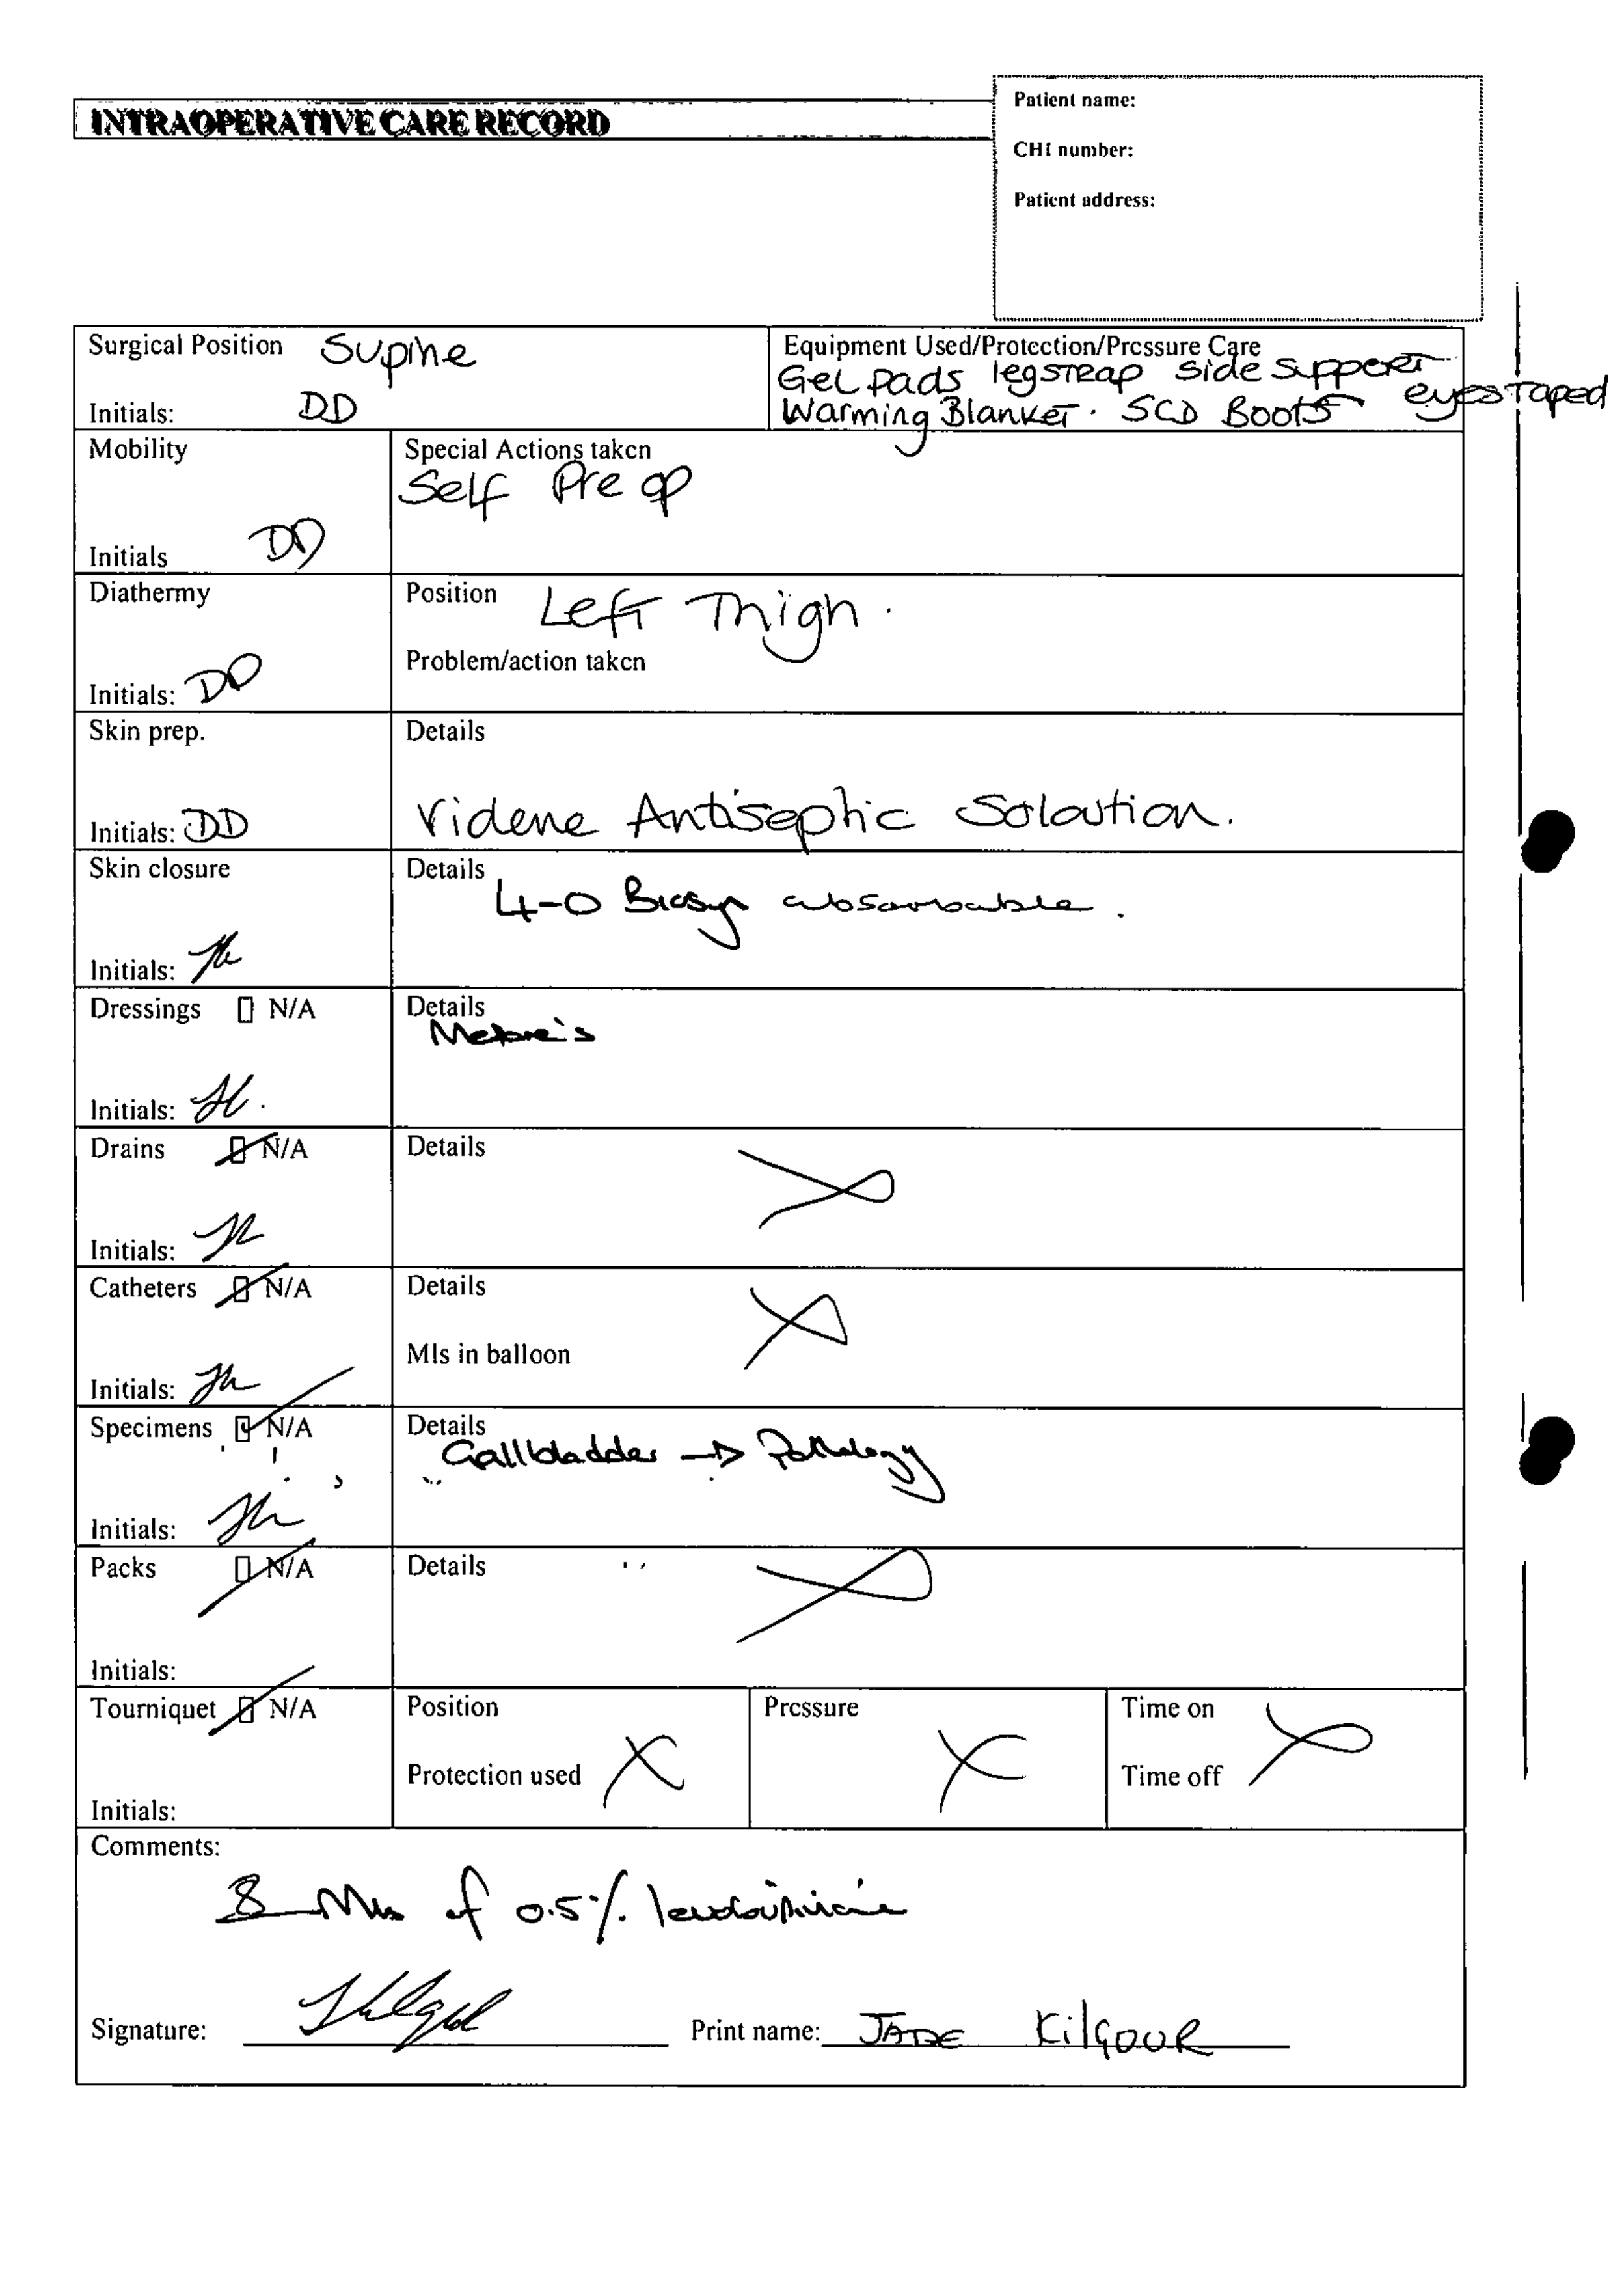 INTRAOPERATIVE CARE RECORD
Patient name:
CHI number:
Patient address:
Surgical Position Supine
Initials: DD
Equipment Used/Protection/Pressure Care
Gel Pads legstrap side support
Warming Blanket. SCD Boots eyes taped
Mobility
Initials DD
Special Actions taken
Self Pre op
Diathermy
Initials: DD
Position Left Thigh.
Problem/action taken
Skin prep.
Initials: DD
Details
Videne Antiseptic Soloution.
Skin closure
Initials:
Details
4-0 Biosyn absorbable.
Dressings N/A
Initials:
Details
Drains N/A
Initials:
Details
Catheters N/A
Initials:
Details
Mls in balloon
Specimens N/A
Initials:
Details
Gallbladder → Pathology
Packs N/A
Initials:
Details
Tourniquet N/A
Initials:
Position
Protection used
Pressure
Time on
Time off
Comments:
8 Mls of 0.5%
Signature:
Print name: JADE KilGOUR